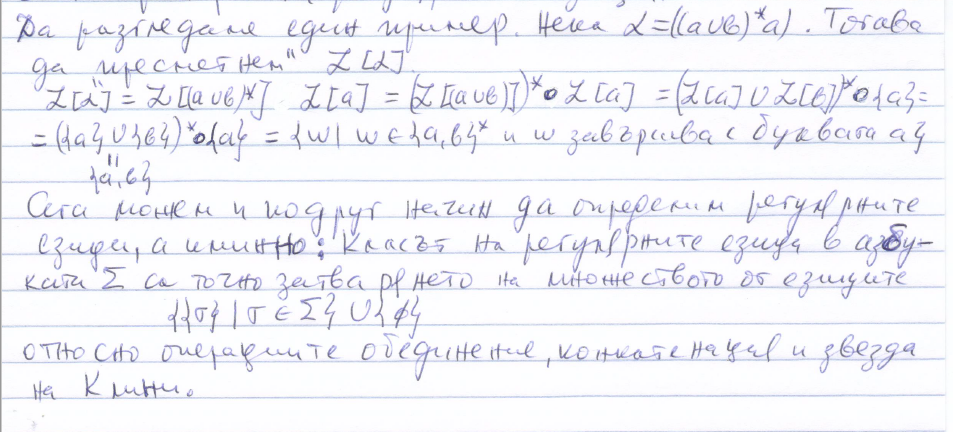 Да разгледаме един пример. Нека α=((a∪b)*a). Тогава
да „пресметнем" ℒ[α].
ℒ[α] = ℒ[(a∪b)*] ℒ[a] = (ℒ[(a∪b)])*∘ℒ[a] = (ℒ[a]∪ℒ[b])*∘{a}=
= ({a}∪{b})*∘{a} = {w| w∈{a,b}* и w завършва с буквата a}
"
{a,b}
Сега можем и по друг начин да определим регулярните
езици, а именно: Класът на регулярните езици в азбу-
ката Σ са точно затварянето на множеството от езиците
{{σ} | σ ∈ Σ} ∪ {ϕ}
относно операциите обединение, конкатенация и звезда
на Клини.